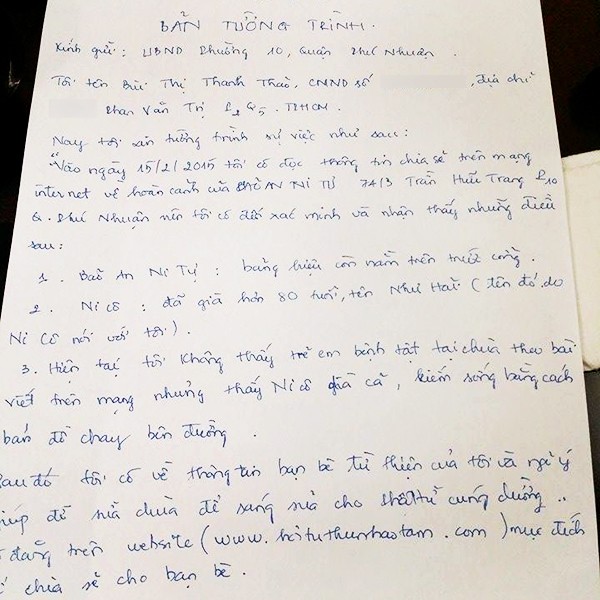 BẢN TƯỜNG TRÌNH.
Kính gửi : UBND Phường 10, Quận Phú Nhuận.
Tôi tên Bùi Thị Thanh Thảo, CMND số , địa chỉ
Phan Văn Trị P2 Q5. TPHCM.
Nay tôi xin tường trình sự việc như sau :
"Vào ngày 15/2/2015 tôi có đọc thông tin chia sẻ trên mạng
internet về hoàn cảnh của BẢO AN NI TỰ 74/3 Trần Hữu Trang P10
Q. Phú Nhuận nên tôi có đến xác minh và nhận thấy những điều
sau :
1. Bảo An Ni Tự : bảng hiệu còn nằm trên trước cổng.
2. Ni cô : đã già hơn 80 tuổi, tên Như Hải (tên đó do
Ni Cô nói với tôi).
3. Hiện tại tôi không thấy trẻ em bệnh tật tại chùa theo bài
viết trên mạng nhưng thấy Ni cô già cả, kiếm sống bằng cách
bán đồ chay bên đường.
Sau đó tôi có về thông tin bạn bè từ thiện của tôi và ngỏ ý
giúp đỡ sửa chùa để sang sửa cho phật tử cúng dường..
đăng trên website (www.hoituthunhaotam.com) mục đích
chia sẻ cho bạn bè.